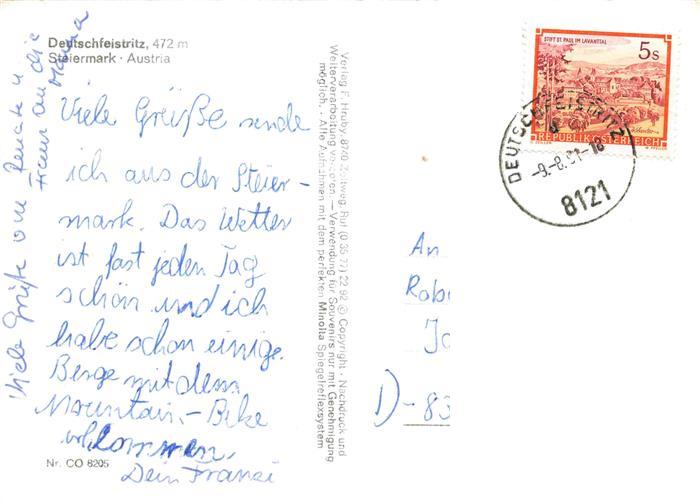 Deutschfeistritz, 472 m
Steiermark · Austria
Viele Grüße sende
ich aus der Steier-
mark. Das Wetter
ist fast jeden Tag
schön und ich
habe schon einige
Berge mit dem
Mountain-Bike
Dein Franzi
Viele Grüße von Renate u
Nr. CO 8205
Verlag F. Hruby, 8720 Ruf (0 35 77) 22 92 © Copyright · Nachdruck und
Weiterverarbeitung — Verwendung für Souvenirs nur mit Genehmigung
möglich. · Alle Aufnahmen mit dem perfekten Minolta Spiegelreflexsystem
STIFT ST. PAUL IM LAVANTTAL
5s
REPUBLIK ÖSTERREICH
DEUTSCHFEISTRITZ
8121
An
Rob
D-83